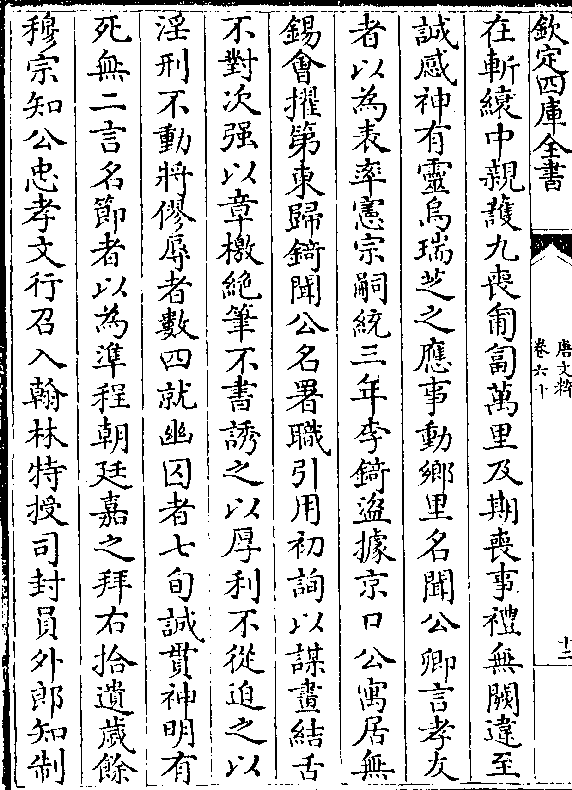 欽定四庫全書
唐文粹
卷六十
十二
在斬縗中親護九喪匍匐萬里及期喪事禮無闕違至
誠感神有靈烏瑞芝之應事動鄉里名聞公卿言孝友
者以為表率憲宗嗣統三年李錡盜據京口公寓居無
錫會擢第東歸錡聞公名署職引用初詢以謀畫結舌
不對次强以章檄絶筆不書誘之以厚利不從迫之以
淫刑不動將僇辱者數四就幽囚者七旬誠貫神明有
死無二言名節者以為凖程朝廷嘉之拜右拾遺歲餘
穆宗知公忠孝文行召入翰林特授司封員外郎知制